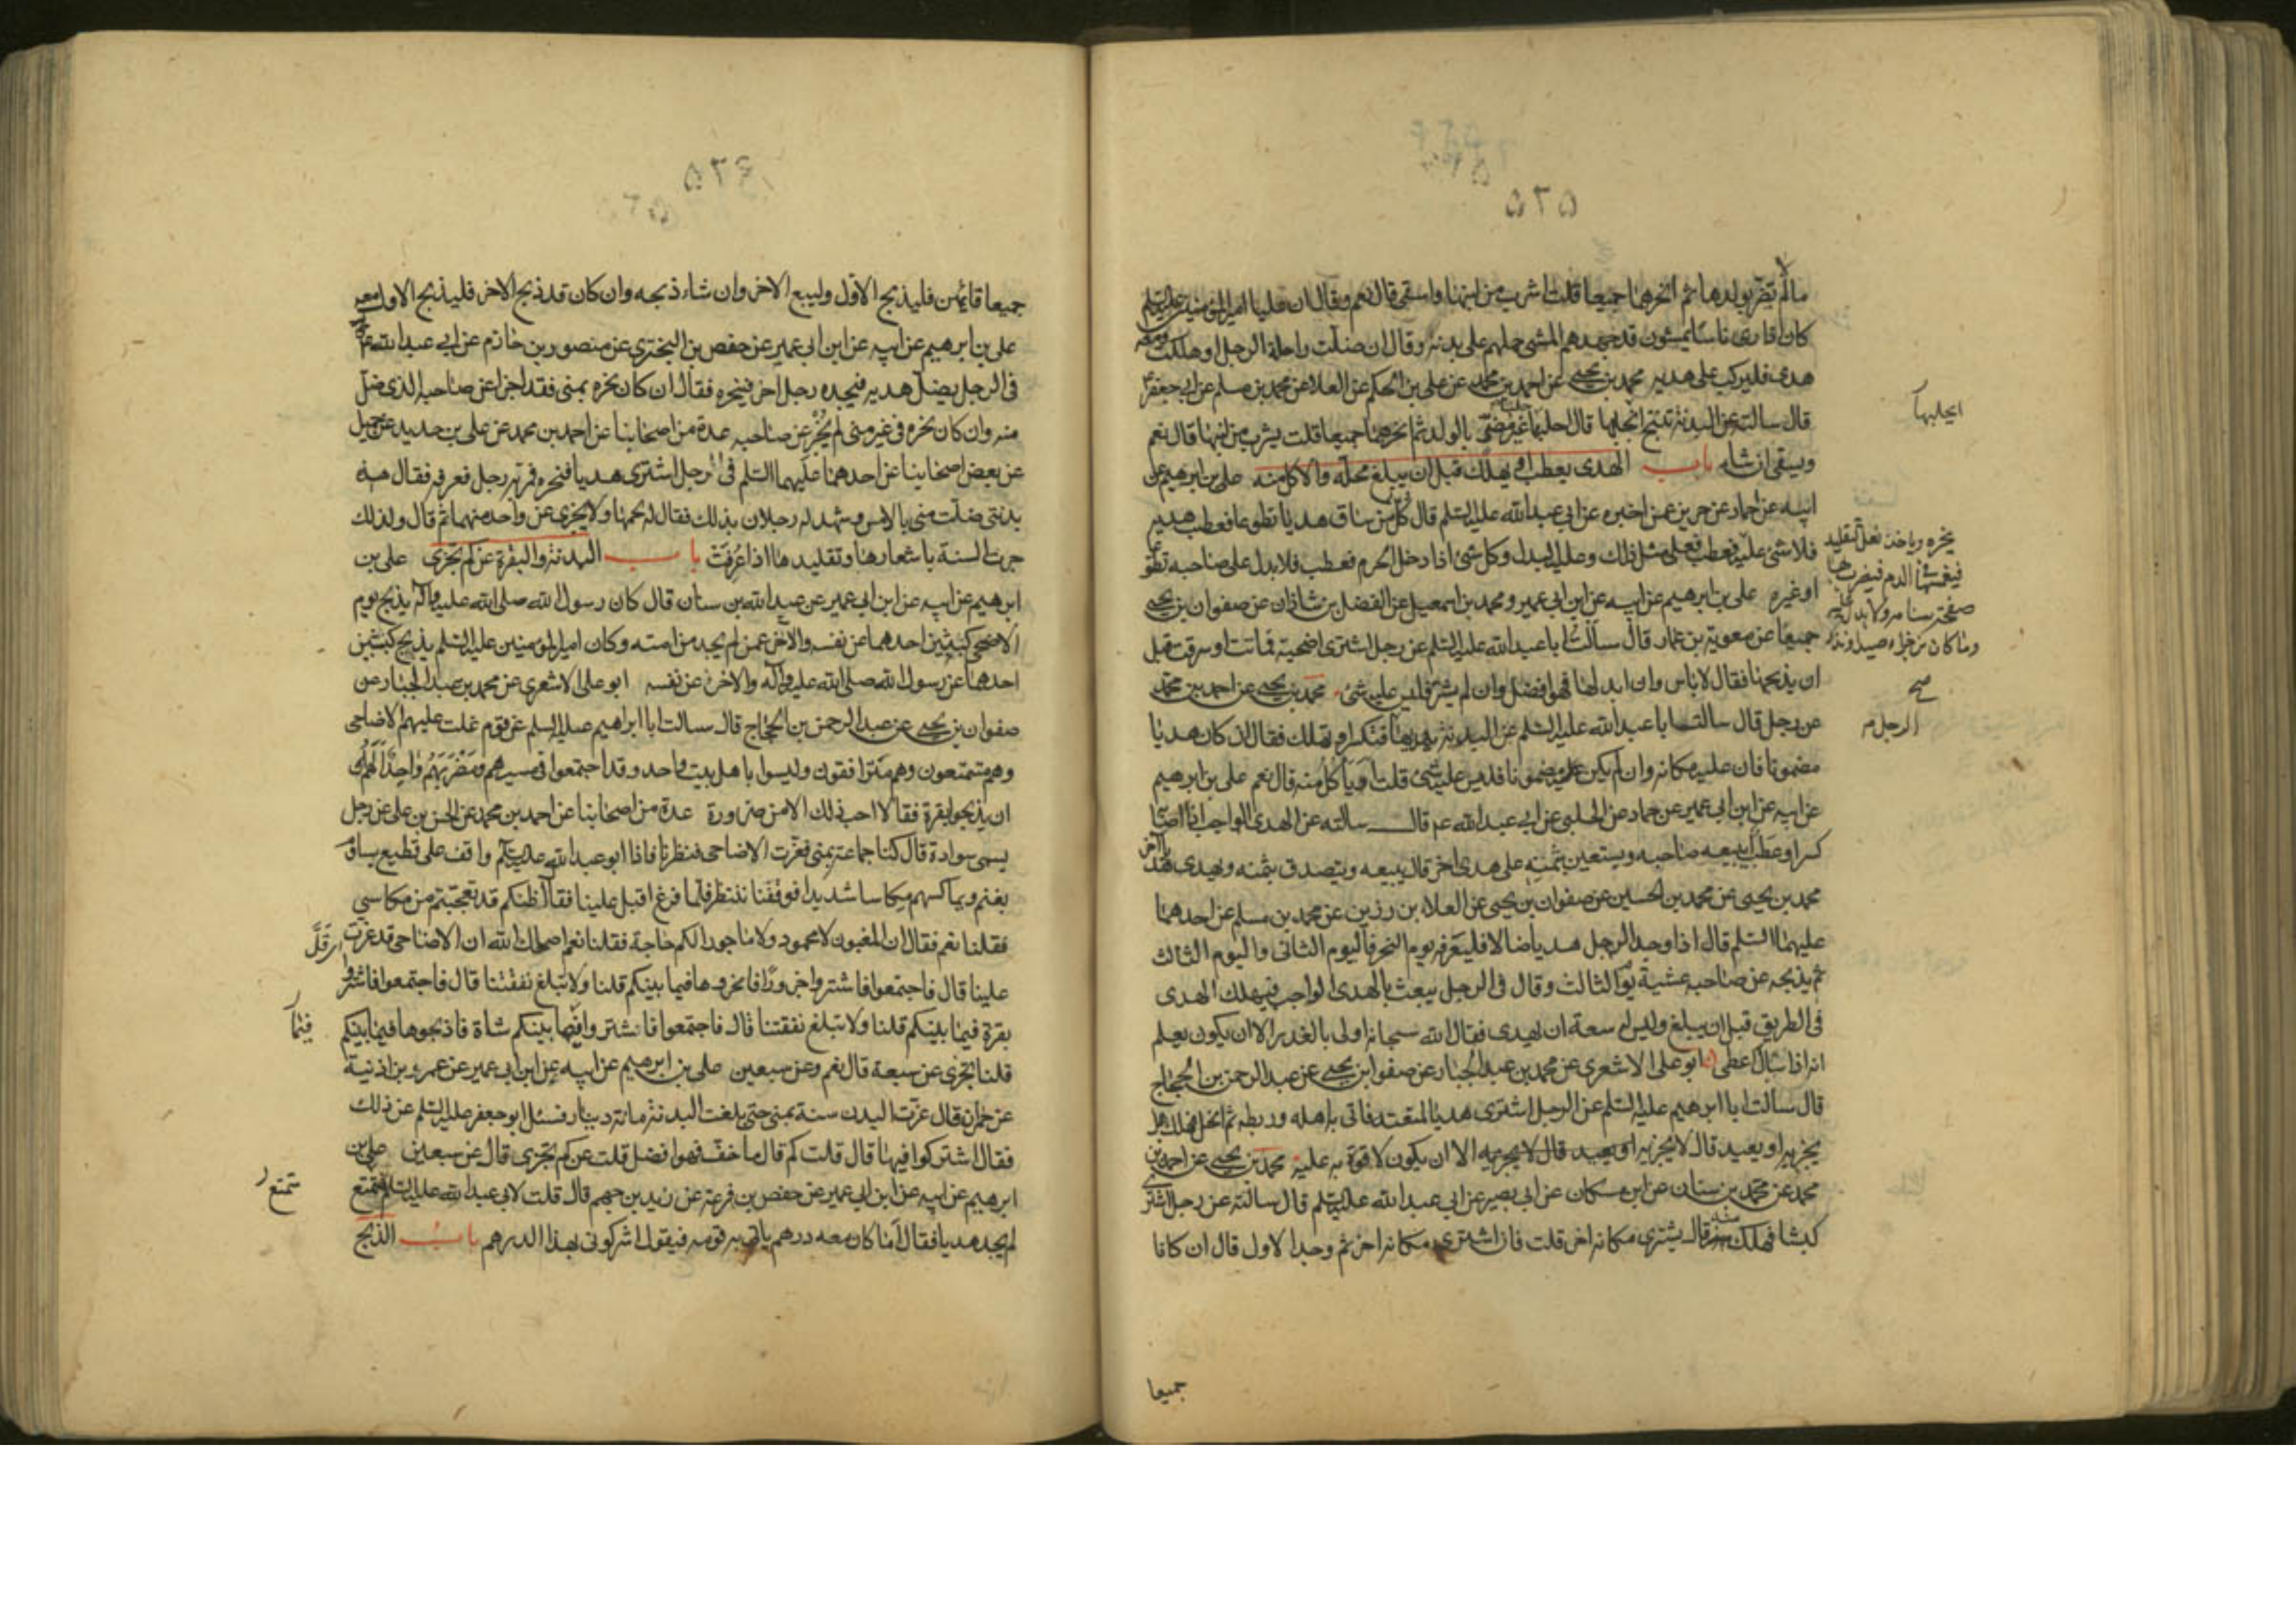 ٥٢٥
مالم يضر بولدها ثم انحرهما جميعا قلت اشرب من لبنها واسقى قال نعم وقال ان عليا امير المؤمنين عليه السلم
كان اذا رى ناسا يمشون قد جهدهم المشى حملهم على بدنه وقال ان ضلت راحلة الرجل او هلكت ومعه
هدى فليركب على هديه محمد بن يحيى عن احمد بن محمد عن على بن الحكم عن العلا عن محمد بن مسلم عن ابى جعفر ع
قال سالته عن البدنة تنتج انحلبها قال احلبها غير مضر بالولد ثم انحرهما جميعا قلت يشرب من لبنها قال نعم
ويسقى ان شاء باب الهدى يعطب او يهلك قبل ان يبلغ محله والاكل منه على بن ابرهيم عن
ابيه عن حماد عن حريز عمن اخبره عن ابى عبد الله عليه السلم قال كل من ساق هديا تطوعا فعطب هديه
فلا شئ عليه فعطب فعلى مثل ذلك وعليه البدل وكل شئ اذا دخل الحرم فعطب فلا بدل على صاحبه تطوعا
او غيره على بن ابرهيم عن ابيه عن ابن ابى عمير ومحمد بن اسمعيل عن الفضل بن شاذان عن صفوان بن يحيى
جميعا عن معوية بن عمار قال سالت ابا عبد الله عليه السلم عن رجل اشترى اضحية فماتت او سرقت قبل
ان يذبحها فقال لا باس وان ابدلها فهو افضل وان لم يشتر فليس عليه شئ محمد بن يحيى عن احمد بن محمد
عن رجل قال سالت ابا عبد الله عليه السلم عن البدنة يهديها فتكسر او تهلك فقال ان كان هديا
مضمونا فان عليه مكانه وان لم يكن مضمونا فليس عليه شئ قلت اوياكل منه قال نعم على بن ابرهيم
عن ابيه عن ابن ابى عمير عن حماد عن الحلبى عن ابى عبد الله ع م قال سالته عن الهدى الواجب اذا اصابها
كسر او عطب ايبيعه صاحبه ويستعين بثمنه على هدى اخر قال يبيعه ويتصدق بثمنه ويهدى هديا آخر
محمد بن يحيى عن محمد بن الحسين عن صفوان بن يحيى عن العلاء بن رزين عن محمد بن مسلم عن احدهما
عليهما السلم قال اذا وجد الرجل هديا ضالا فليعرفه يوم النحر واليوم الثانى واليوم الثالث
ثم يذبحه عن صاحبه عشية يوم الثالث وقال فى الرجل يبعث بالهدى الواجب فيهلك الهدى
فى الطريق قبل ان يبلغ وليس له سعة ان يهدى فقال الله سبحانه اولى بالعذر الا ان يكون يعلم
انه اذا سال اعطى ابو على الاشعرى عن محمد بن عبد الجبار عن صفوان بن يحيى عن عبد الرحمن بن الحجاج
قال سالت ابا ابرهيم عليه السلم عن الرجل اشترى هديا لمتعته فاتى به اهله وربطه ثم انحل فهلك هل
يجزيه او يعيد قال لا يجزيه الا ان يكون لا قوة به عليه محمد بن يحيى عن احمد بن
محمد عن محمد بن سنان عن ابن مسكان عن ابى بصير عن ابى عبد الله عليه السلم قال سالته عن رجل اشترى
كبشا فهلك منه قال يشترى مكانه اخر قلت فان اشترى مكانه اخر ثم وجد الاول قال ان كانا
جميعا
ايحلبها
ينحره وياخذ نعل التقليد
فيغمسها فى الدم فيضرب بها
صفحة سنامه ولا بدل عليه
وما كان من جزاء صيد او نذر
صح
الرجل
٥٢٤
جميعا قائمين فليذبح الاول وليبع الاخر وان شاء ذبحه وان كان قد ذبح الاخر فليذبح الاول معه
على بن ابرهيم عن ابيه عن ابن ابى عمير عن حفص بن البخترى عن منصور بن حازم عن ابى عبد الله ع م
فى الرجل يضل هديه فيجده رجل اخر فينحره فقال ان كان نحره بمنى فقد اجزا عن صاحبه الذى ضل
منه وان كان نحره فى غير منى لم يجز عن صاحبه عدة من اصحابنا عن احمد بن محمد عن على بن حديد عن جميل
عن بعض اصحابنا عن احدهما عليهما السلم فى رجل اشترى هديا فنحره فمر به رجل فعرفه فقال هذه
بدنتى ضلت منى بالامس وشهد له رجلان بذلك فقال له لحمها ولا يجزى عن واحد منهما ثم قال ولذلك
جرت السنة باشعارها وتقليدها اذا عرفت باب البدنة والبقرة عن كم تجزى على بن
ابرهيم عن ابيه عن ابن ابى عمير عن عبد الله بن سنان قال كان رسول الله صلى الله عليه وآله يذبح يوم
الاضحى كبشين احدهما عن نفسه والاخر عمن لم يجد من امته وكان امير المؤمنين عليه السلم يذبح كبشين
احدهما عن رسول الله صلى الله عليه وآله والاخر عن نفسه ابو على الاشعرى عن محمد بن عبد الجبار عن
صفوان بن يحيى عن عبد الرحمن بن الحجاج قال سالت ابا ابراهيم عليه السلم عن قوم غلت عليهم الاضاحى
وهم متمتعون وهم مترافقون وليسوا باهل بيت واحد وقد اجتمعوا فى مسيرهم ومضربهم واحد الهم
ان يذبحوا بقرة فقال لا احب ذلك الا من ضرورة عدة من اصحابنا عن احمد بن محمد عن الحسن بن على عن رجل
يسمى سوادة قال كنا جماعة بمنى فعزت الاضاحى فنظرنا فاذا ابو عبد الله عليه السلم واقف على قطيع يساوم
بغنم ويماكسهم مكاسا شديدا فوقفنا ننتظر فلما فرغ اقبل علينا فقال اظنكم قد تعجبتم من مكاسى
فقلنا نعم فقال ان المغبون لا محمود ولا ماجور الكم حاجة فقلنا نعم اصلحك الله ان الاضاحى قد عزت
علينا قال فاجتمعوا فاشتروا جزورا فانحروها فيما بينكم قلنا ولا تبلغ نفقتنا قال فاجتمعوا فاشتروا
بقرة فيما بينكم قلنا ولا تبلغ نفقتنا قال فاجتمعوا فاشتروا فيما بينكم شاة فاذبحوها فيما بينكم
قلنا تجزى عن سبعة قال نعم وعن سبعين على بن ابرهيم عن ابيه عن ابن ابى عمير عن عمر بن اذنية
عن حمران قال عزت البدن سنة بمنى حتى بلغت البدنة مائة دينار فسئل ابو جعفر عليه السلم عن ذلك
فقال اشتركوا فيها قال قلت كم قال ما خف فهو افضل قلت عن كم تجزى قال عن سبعين على بن
ابرهيم عن ابيه عن ابن ابى عمير عن حفص بن قرعة عن زيد بن جهم قال قلت لابى عبد الله عليه السلم متمتع
لم يجد هديا فقال اما كان معه درهم ياتى به قومه فيقول اشركونى بهذا الدرهم باب الذبح
فيما
متمتع